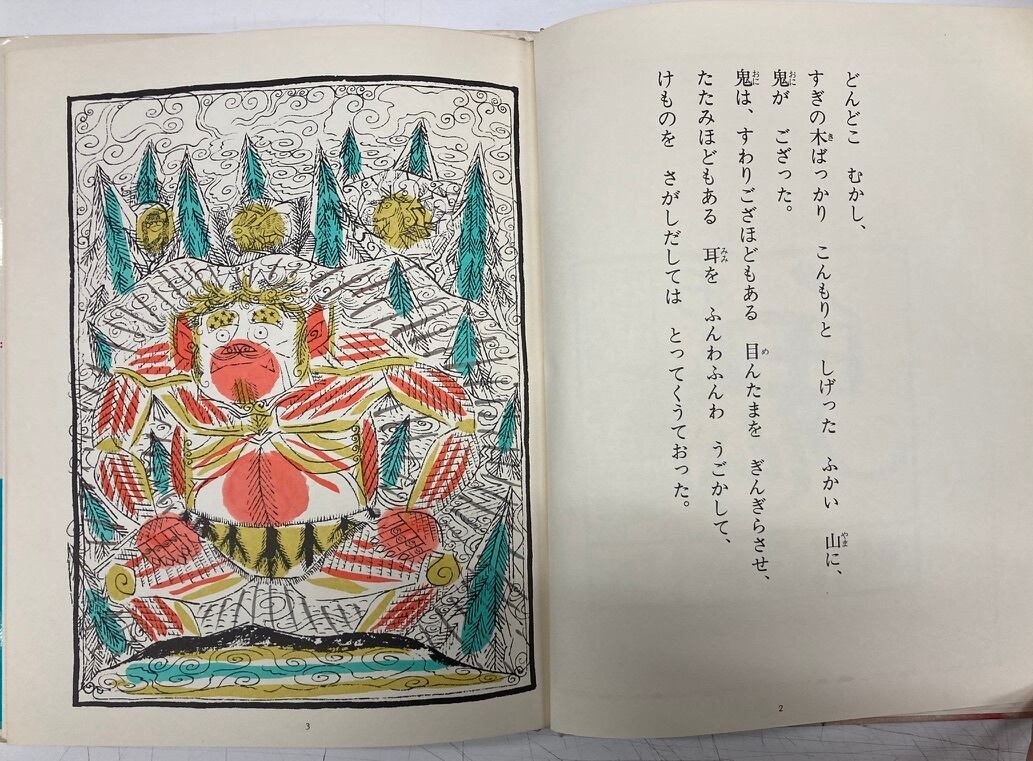 どんどこ　むかし、
すぎの木ばっかり　こんもりと　しげった　ふかい　山に、
鬼が　ござった。
鬼は、すわりござほどもある　目んたまを　ぎんぎらさせ、
たたみほどもある　耳を　ふんわふんわ　うごかして、
けものを　さがしだしては　とってくうておった。
2
3